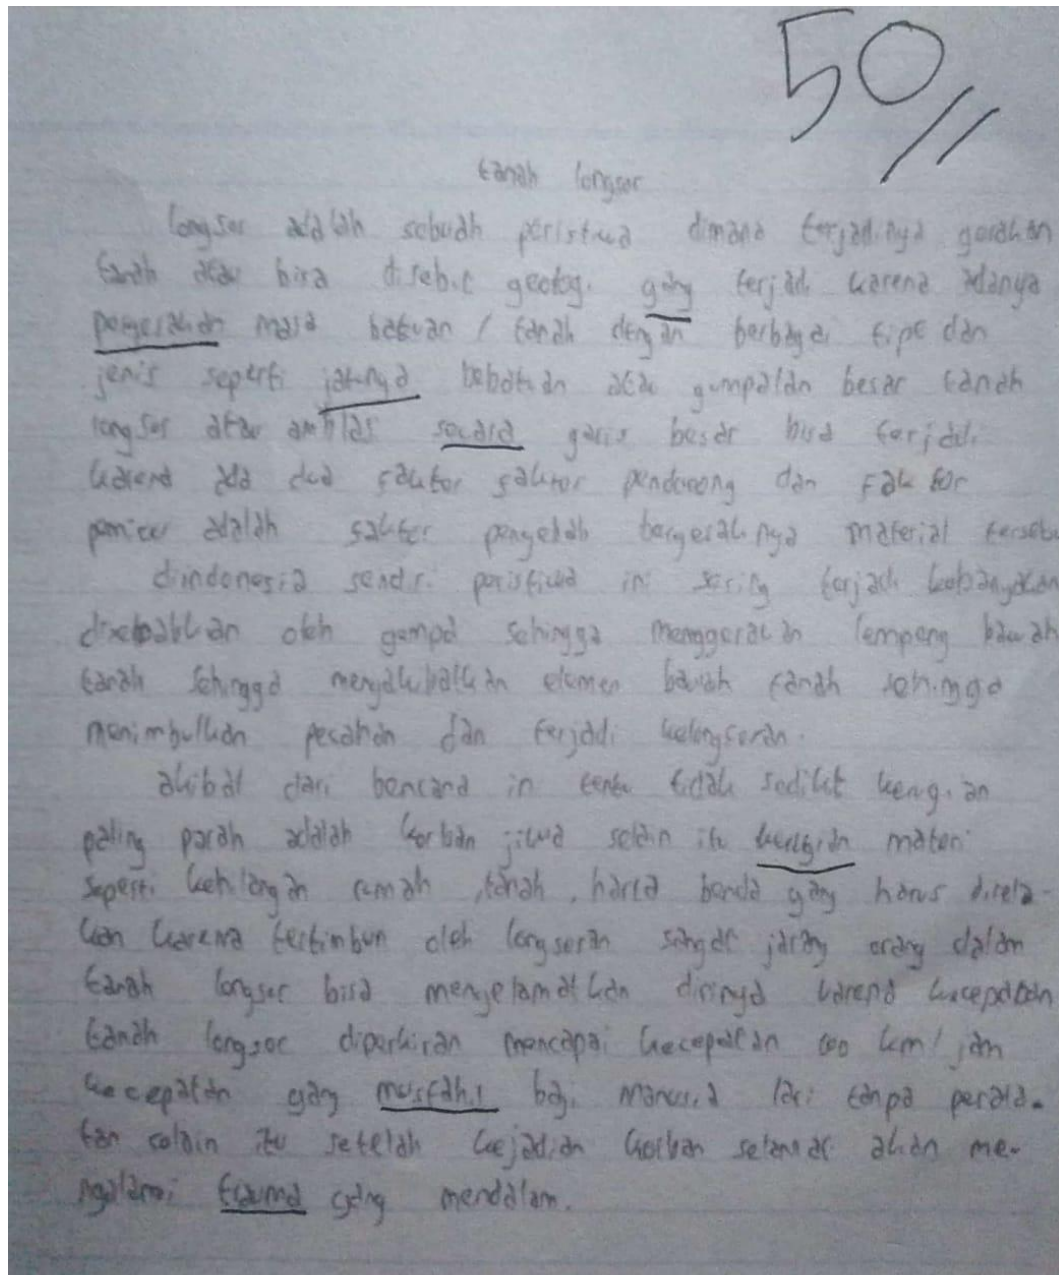 50
tanah longsor
longsor adalah sebuah peristiwa dimana terjadinya gerakan
tanah atau bisa disebut geologi yang terjadi karena adanya
pergerakan masa batuan / tanah dengan berbagai tipe dan
jenis seperti jatunya bebatuan atau gumpalan besar tanah
longsor atau amblas secara garis besar bisa terjadi
karena ada dua faktor faktor pendorong dan Faktor
pemicu adalah faktor pergerakan material
diindonesia sendiri peristiwa ini sering terjadi kebanyakan
disebabkan oleh gempa sehingga menggerakan lempeng bawah
tanah sehingga mengakibatkan elemen bawah tanah sehingga
menimbulkan pecahan dan terjadi kelongsoran.
akibat dari bencana in tentu tidak sedikit
paling parah adalah korban jiwa selain itu materi
seperti kehilangan rumah, tanah, harta benda yang harus direla-
kan karena tertimbun oleh longsoran sangat jarang orang dalam
tanah longsor bisa menyelamatkan dirinya karena kecepatan
tanah longsor diperkiran mencapai kecepatan km/jam
kecepatan yang mustahil bagi manusia lari tanpa perala-
tan selain itu setelah kejadian korban selamat akan me-
ngalami trauma yang mendalam.